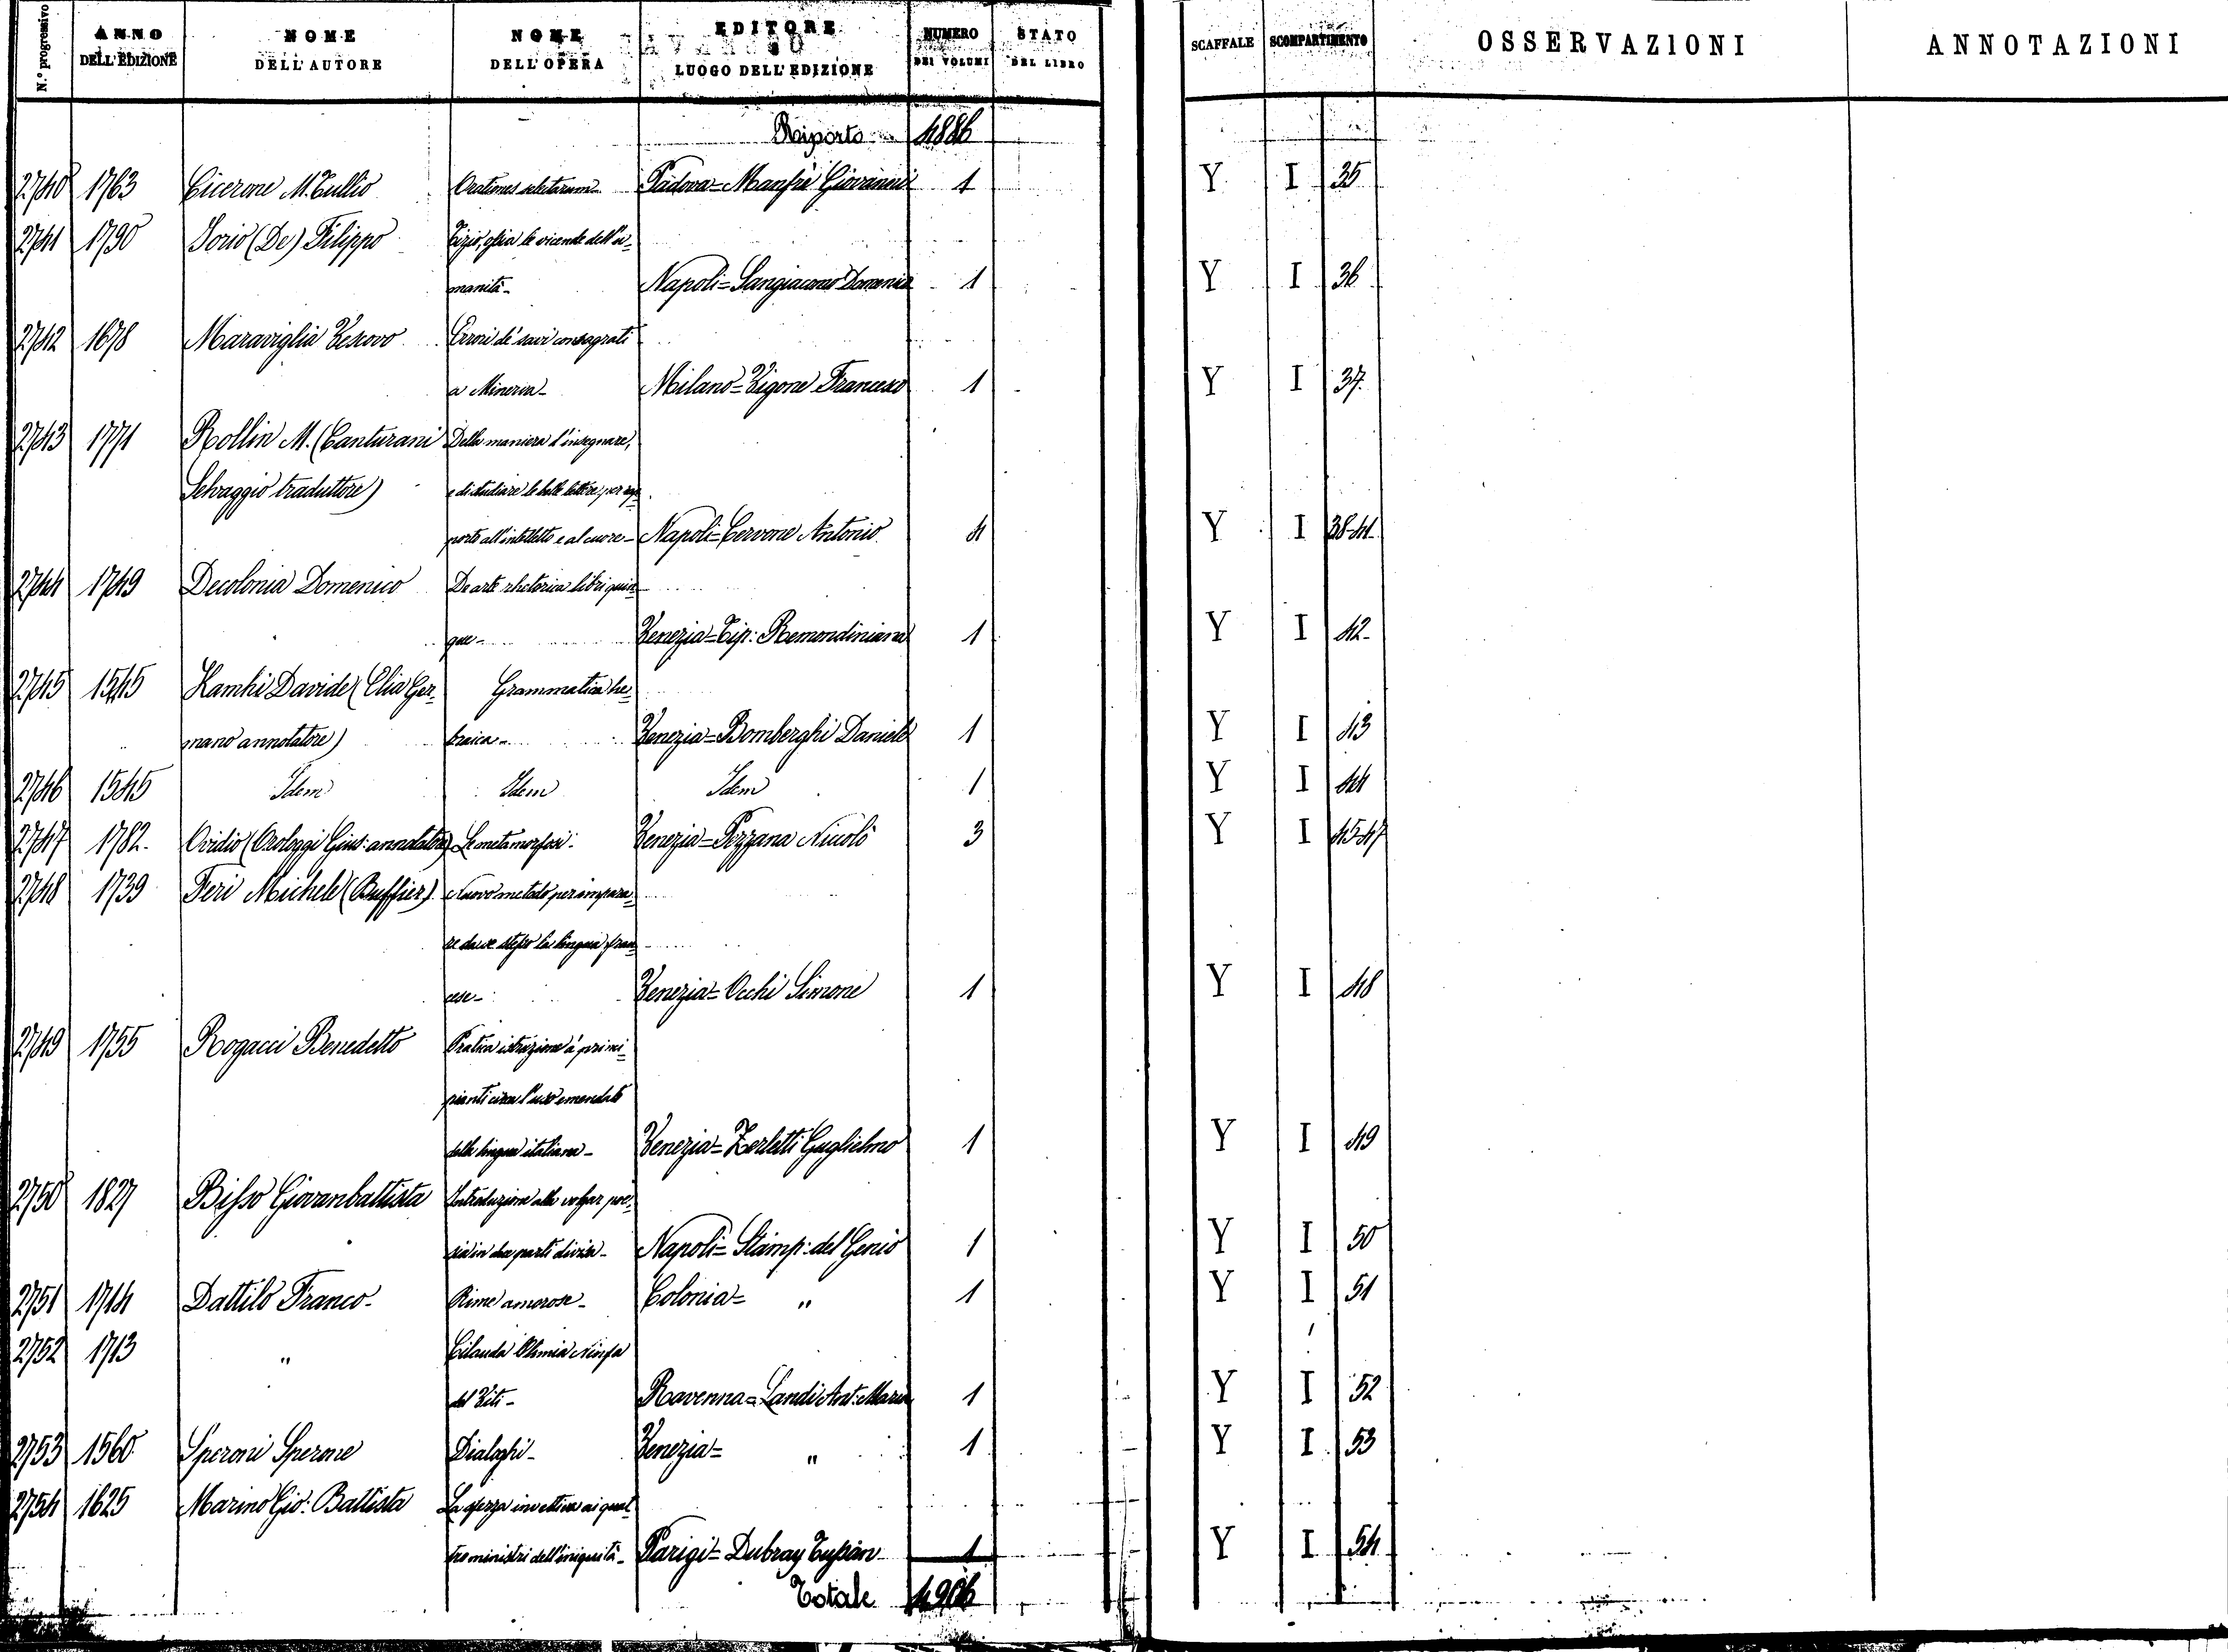 N.° progressivo ANNO DELL'EDIZIONE NOME DELL'AUTORE NOME DELL'OPERA EDITORE LUOGO DELL'EDIZIONE NUMERO DEI VOLUMI STATO DEL LIBRO SCAFFALE SCOMPARTIMENTO OSSERVAZIONI ANNOTAZIONI
Riporto 4886
2740 1763 Cicerone M. Tullio Orationes selectarum Padova = Manfrè Giovanni 1 Y I 35
2741 1790 Iorio (De) Filippo Tizio, ossia le vicende dell'u-
manità - Napoli = Sangiacomo Domenico 1 Y I 36
2742 1678 Maraviglia Vescovo Errori de' savi consagrati
a Minerva - Milano = Vigone Francesco 1 Y I 37
2743 1771 Rollin M. (Canturani Della maniera d'insegnare,
Selvaggio traduttore) e di studiare le belle lettere, per rap-
porto all'intelletto e al cuore - Napoli = Cervone Antonio 4 Y I 38-41
2744 1749 Decolonia Domenico De arte rhetorica libri quin-
que - Venezia = Tip: Remondiniana 1 Y I 42
2745 1545 Kamhi Davide (Elia Ger- Grammatica he-
mano annotatore) braica - Venezia = Bomberghi Daniele 1 Y I 43
2746 1545 Idem Idem Idem 1 Y I 44
2747 1782 Ovidio (Orologgi Gius: annotatore) Le metamorfosi: Venezia = Pezzana Niccolò 3 Y I 45-47
2748 1739 Feri Michele (Buffier) Nuovo metodo per impara-
re da se stesso la lingua fran-
cese - Venezia = Occhi Simone 1 Y I 48
2749 1755 Rogacci Benedetto Pratica istruzione a' princi-
pianti circa l'uso emendato
della lingua italiana - Venezia = Zerletti Guglielmo 1 Y I 49
2750 1827 Bisso Giovanbattista Introduzione alla volgar poe-
sia in due parti divisa - Napoli = Stamp: del Genio 1 Y I 50
2751 1714 Dattilo Franco - Rime amorose - Colonia = " 1 Y I 51
2752 1713 " Ninfa
del - Ravenna = Landi Ant: Maria 1 Y I 52
2753 1560 Speroni Sperone Dialoghi - Venezia = " 1 Y I 53
2754 1625 Marino Gio: Battista La sferza invettiva ai quat-
tro ministri dell'iniquità - Parigi = Dubray Tussan 1 Y I 54
Totale 4906